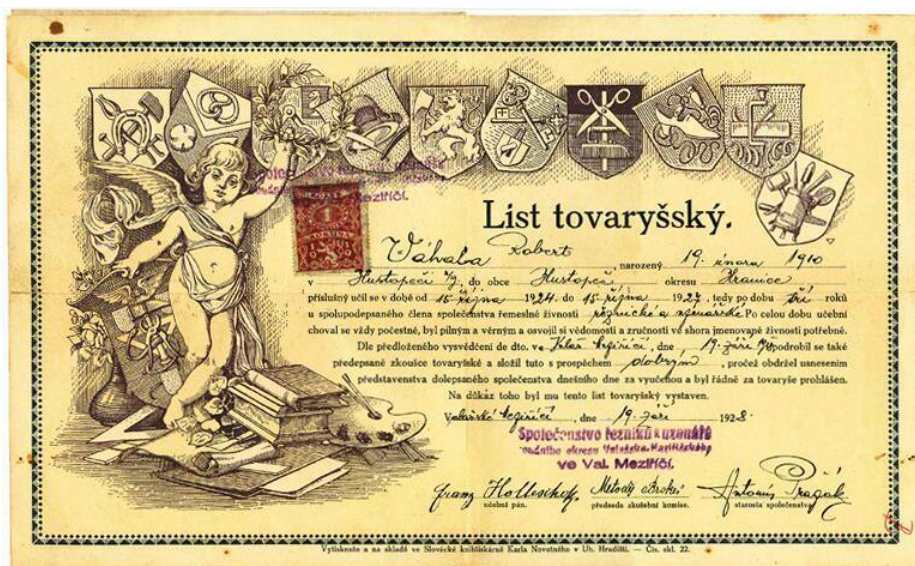 List tovaryšský.
Váhala Robert narozený 19. února 1910
v Hustopeči n/B, do obce Hustopeč okresu Hranice
příslušný učil se v době od 15 října 1924 do 15 října 1927, tedy po dobu tří roků
u spolupodepsaného člena společenstva řemeslné živnosti řeznické a uzenářské Po celou dobu učební
choval se vždy počestně, byl pilným a věrným a osvojil si vědomosti a zručnosti ve shora jmenované živnosti potřebné.
Dle předloženého vysvědčení de dto. ve Valaš Meziříčí, dne 19. září podrobil se také
předepsané zkoušce tovaryšské a složil tuto s prospěchem dobrým, pročež obdržel usnesením
představenstva dolepsaného společenstva dnešního dne za vyučenou a byl řádně za tovaryše prohlášen.
Na důkaz toho byl mu tento list tovaryšský vystaven.
Valašské Meziříčí, dne 19. září 1928.
Společenstvo řezníků a uzenářů
soudního okresu Valašsko-Meziříčského
ve Val. Meziříčí.
Franz Antonín Pražák
učební pán. předseda zkušební komise. starosta společenstva
Vytisknuto a na skladě ve Slovácké knihtiskárně Karla Novotného v Uh. Hradišti. — Čís. skl. 22.